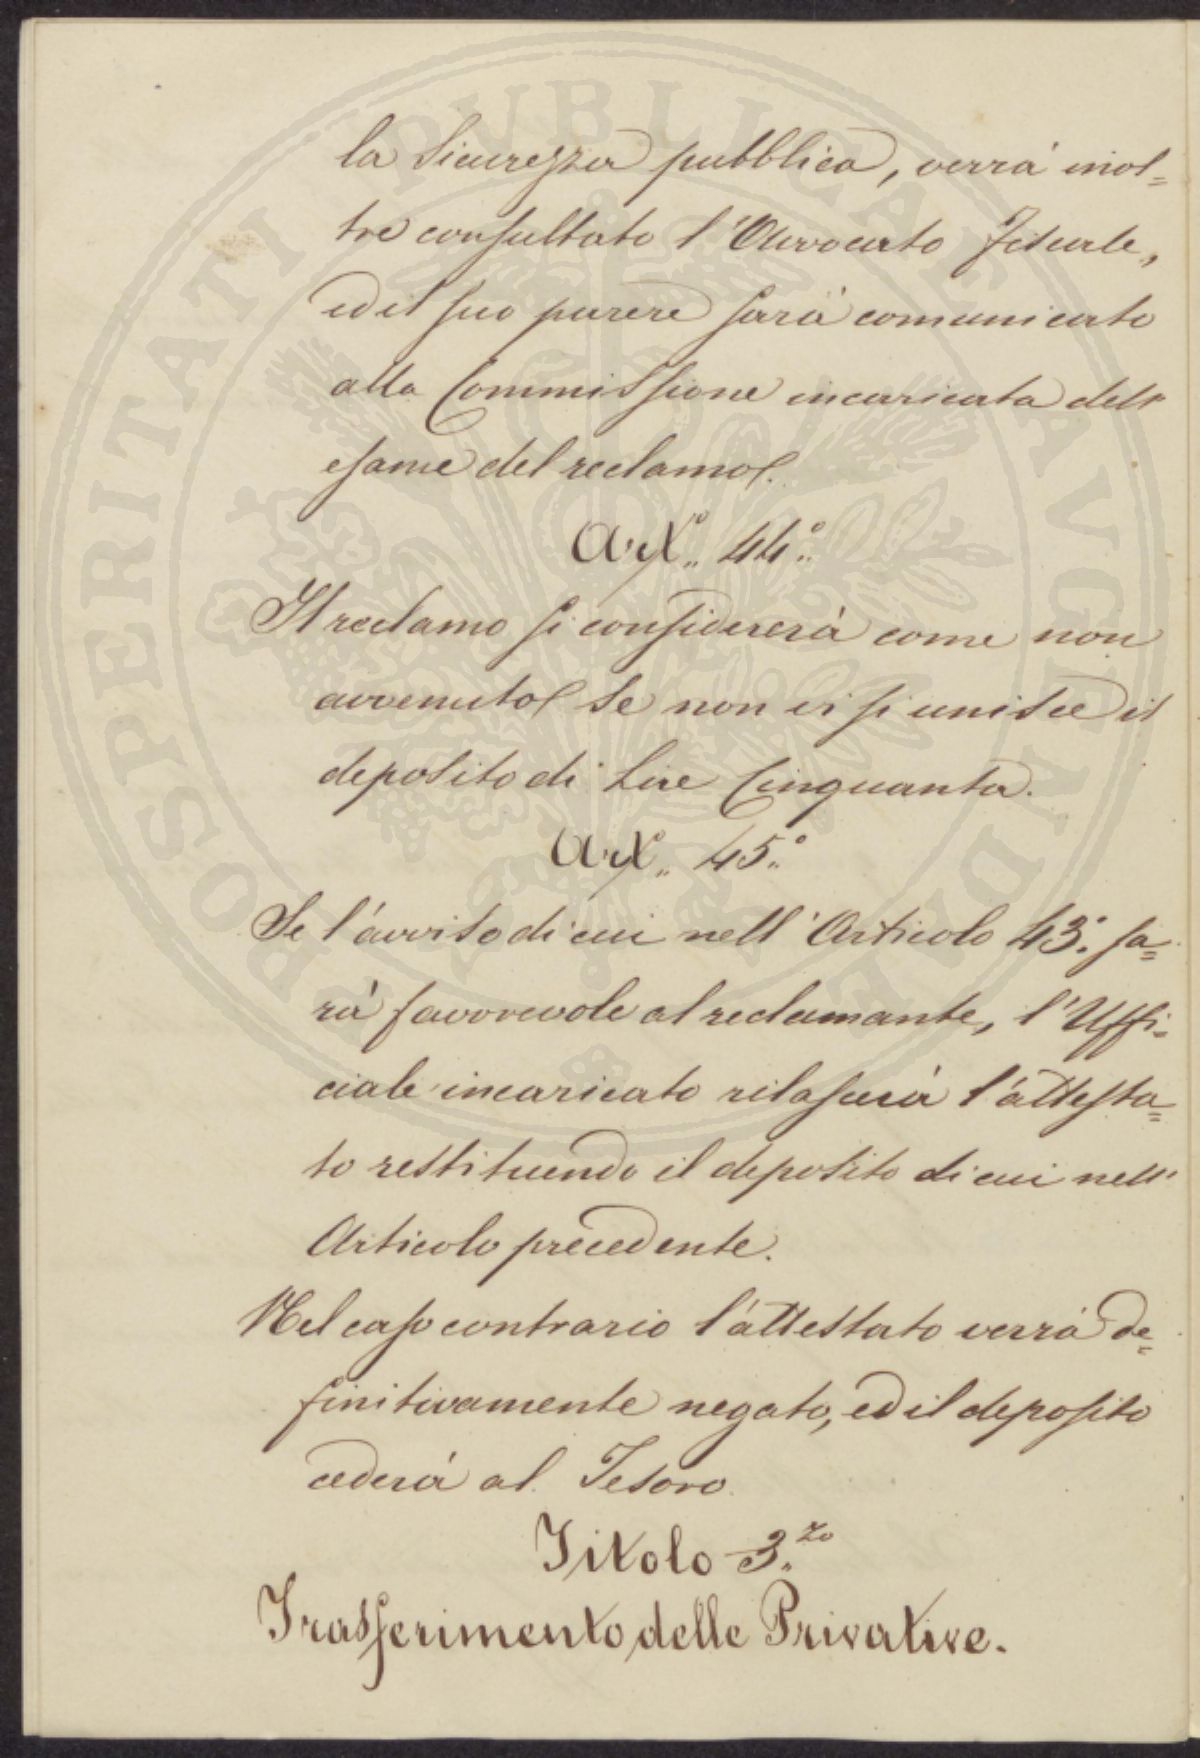 la Sicurezza pubblica, verrà inol=
tre consultato l'Avvocato Fiscale,
ed il suo parere sarà comunicato
alla Commissione incaricata dell'
esame del reclamo.
Art.° 44.°
Il reclamo si considererà come non
avvenuto se non vi si unisce il
deposito di Lire Cinquanta.
Art.° 45.°
Se l'avviso di cui nell'Articolo 43.° sa=
rà favorevole al reclamante, l'Uffi=
ciale incaricato rilascerà l'attesta=
to restituendo il deposito di cui nell'
Articolo precedente.
Nel caso contrario l'attestato verrà de=
finitivamente negato, ed il deposito
cederà al Tesoro.
Titolo 3.zo
Trasferimento delle Privative.
PROSPERITATI PUBLICAE AVGENDAE